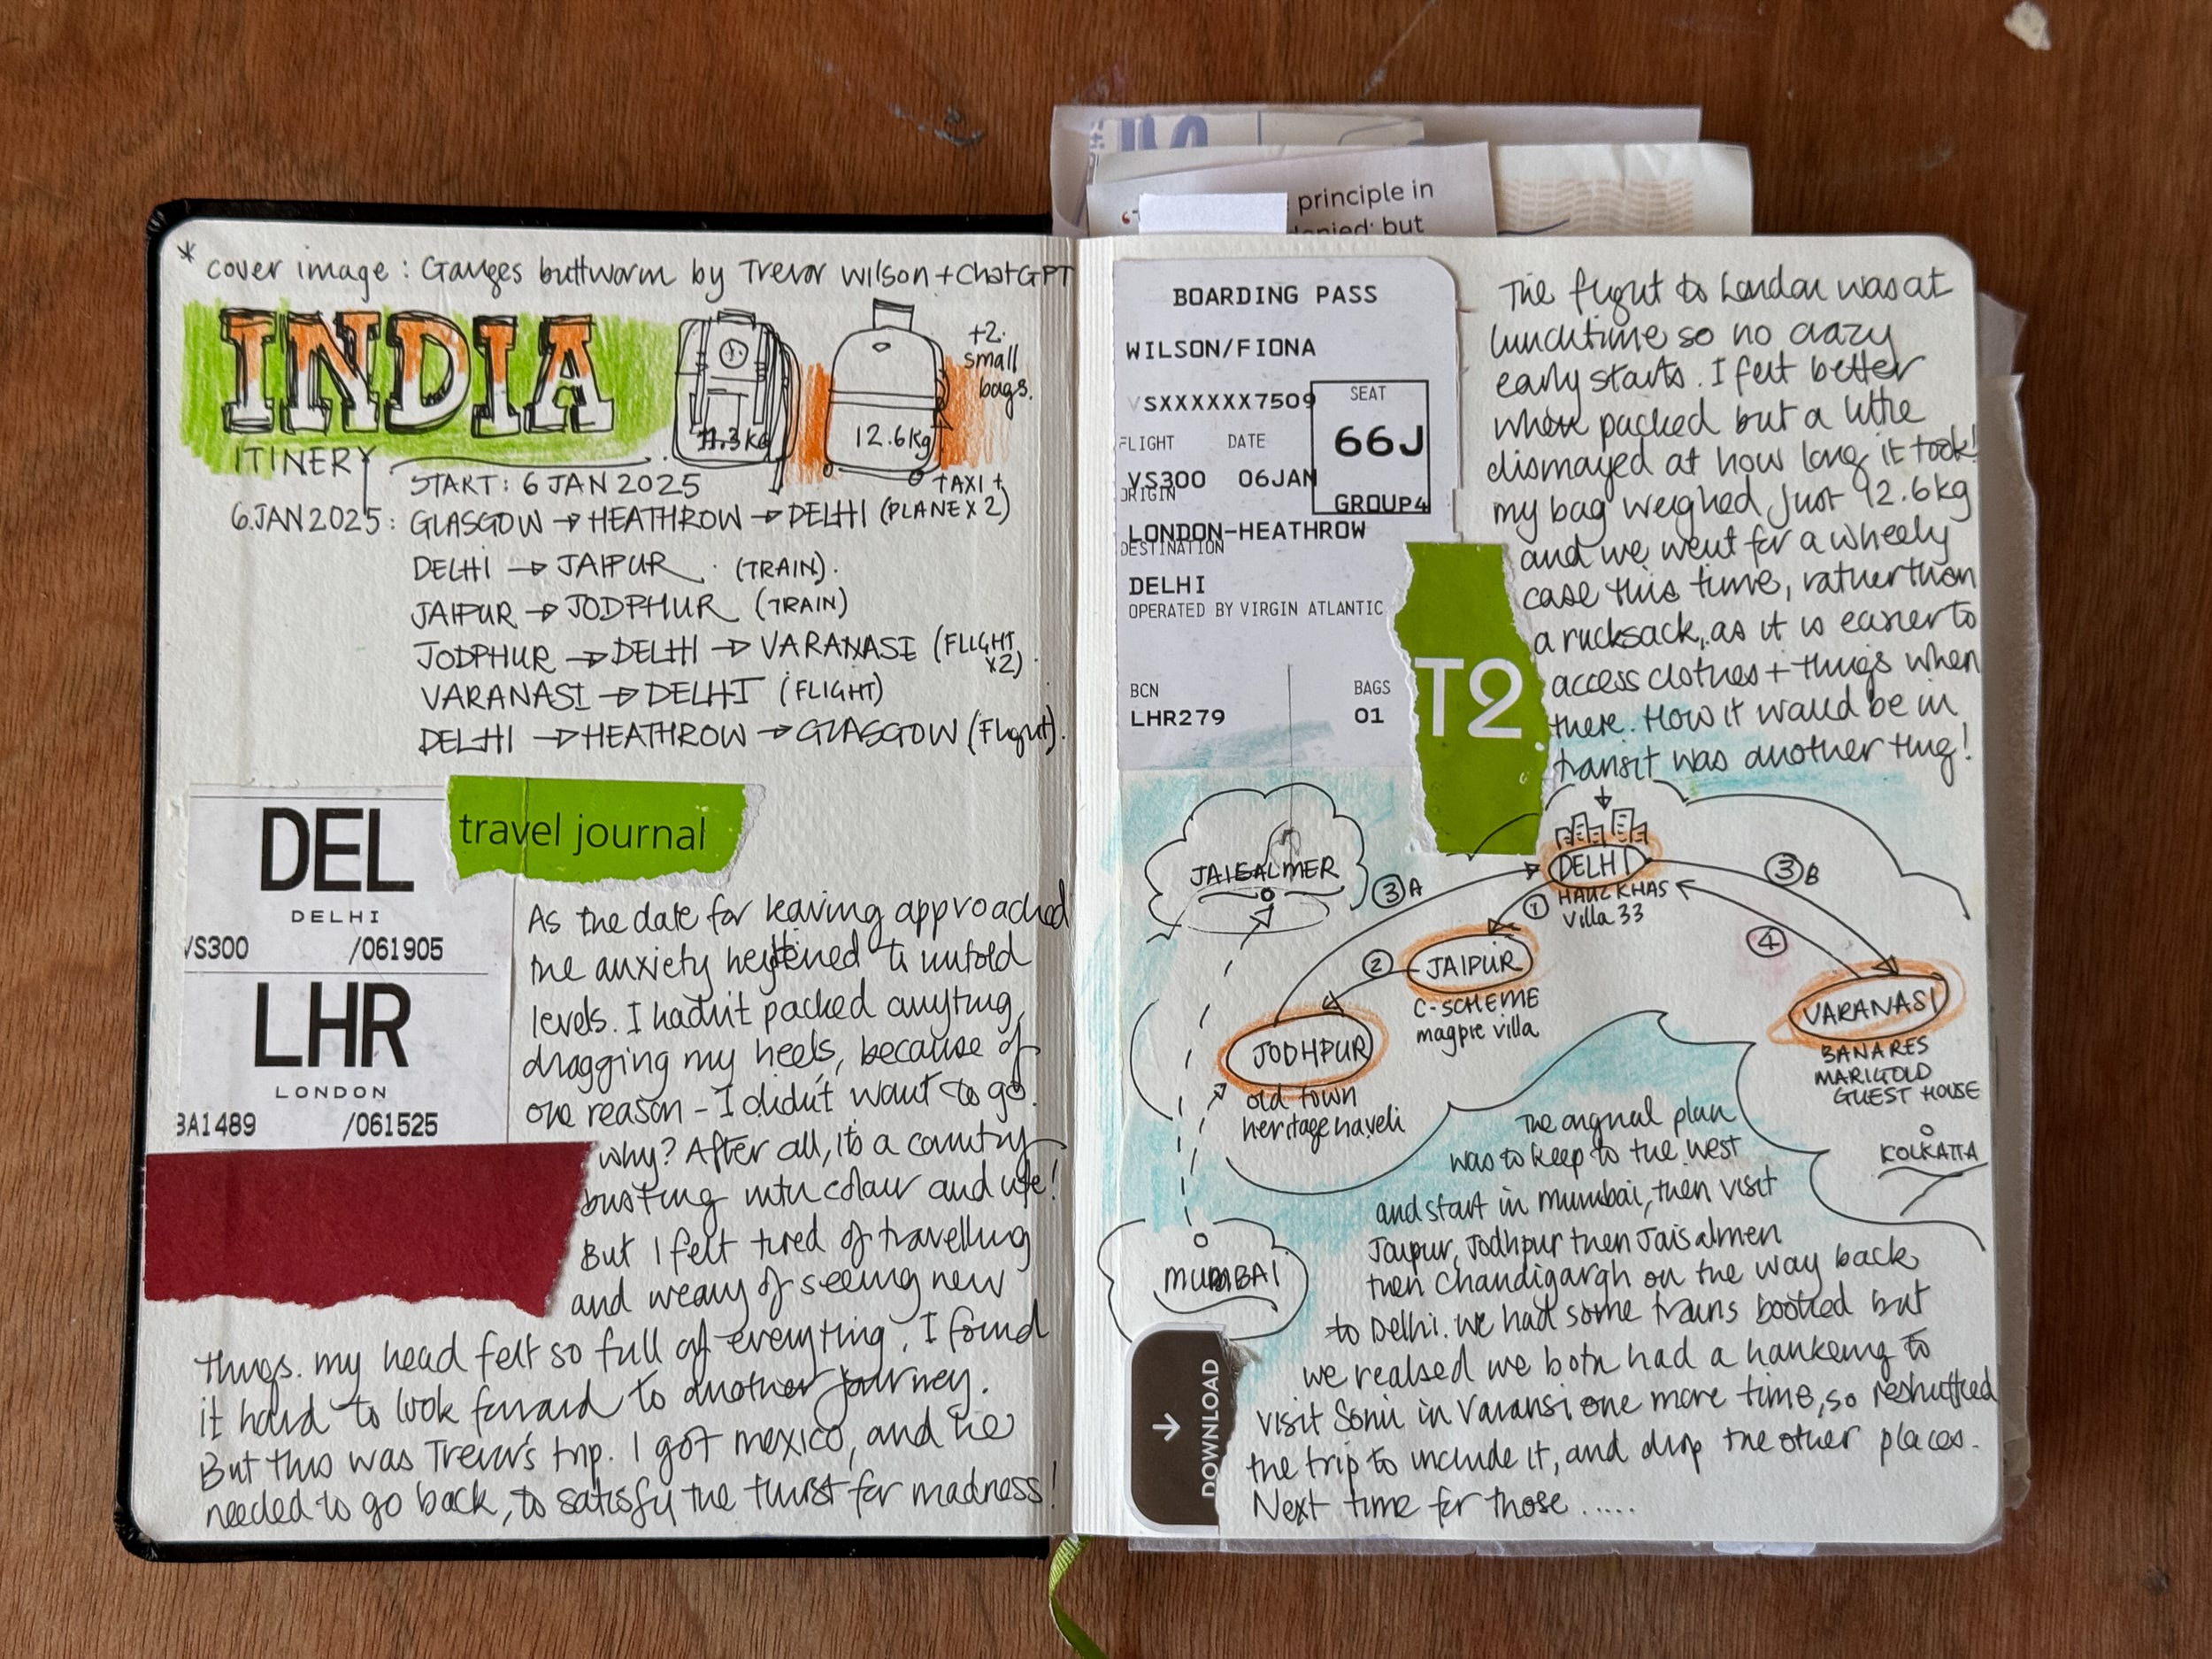 * cover image : Ganges buttworm by Trevor Wilson + ChatGPT
INDIA
11.3kg
12.6kg
+2
small
bags.
ITINERY
START: 6 JAN 2025
TAXI +
6 JAN 2025: GLASGOW → HEATHROW → DELHI (PLANE X 2)
DELHI → JAIPUR. (TRAIN).
JAIPUR → JODPHUR (TRAIN)
JODPHUR → DELHI → VARANASI (FLIGHT
X2).
VARANASI → DELHI (FLIGHT)
DELHI → HEATHROW → GLASGOW (Flight).
DEL
DELHI
VS300 /061905
LHR
LONDON
BA1489 /061525
travel journal
As the date for leaving approached
the anxiety heightened to untold
levels. I hadn't packed anything,
dragging my heels, because of
one reason - I didn't want to go.
why? After all, it's a country
busting with colour and life!
But I felt tired of travelling
and weary of seeing new
things. my head felt so full of everything. I found
it hard to look forward to another journey.
But this was Trevor's trip. I got mexico, and he
needed to go back, to satisfy the thirst for madness!
principle in
but
BOARDING PASS
WILSON/FIONA
VSXXXXXX7509
SEAT
66J
GROUP4
FLIGHT DATE
VS300 06JAN
ORIGIN
LONDON-HEATHROW
DESTINATION
DELHI
OPERATED BY VIRGIN ATLANTIC
BCN BAGS
LHR279 01
T2
The flight to London was at
lunchtime so no crazy
early starts. I felt better
when packed but a little
dismayed at how long it took!
my bag weighed just 12.6kg
and we went for a wheely
case this time, rather than
a rucksack, as it is easier to
access clothes + things when
there. How it would be in
transit was another thing!
JAISALMER
DELHI
HAUZ KHAS
Villa 33
3A
3B
1
4
2
JAIPUR
C-SCHEME
magpie villa
JODHPUR
old town
heritage haveli
VARANASI
BANARES
MARIGOLD
GUEST HOUSE
KOLKATTA
MUMBAI
The orginal plan
was to keep to the west
and start in mumbai, then visit
Jaipur, Jodhpur then Jaisalmer
then Chandigargh on the way back
to Delhi. we had some trains booked but
we realsed we both had a hankering to
visit Sonu in Varansi one more time, so reshuffled
the trip to include it, and drop the other places.
Next time for those .....
DOWNLOAD